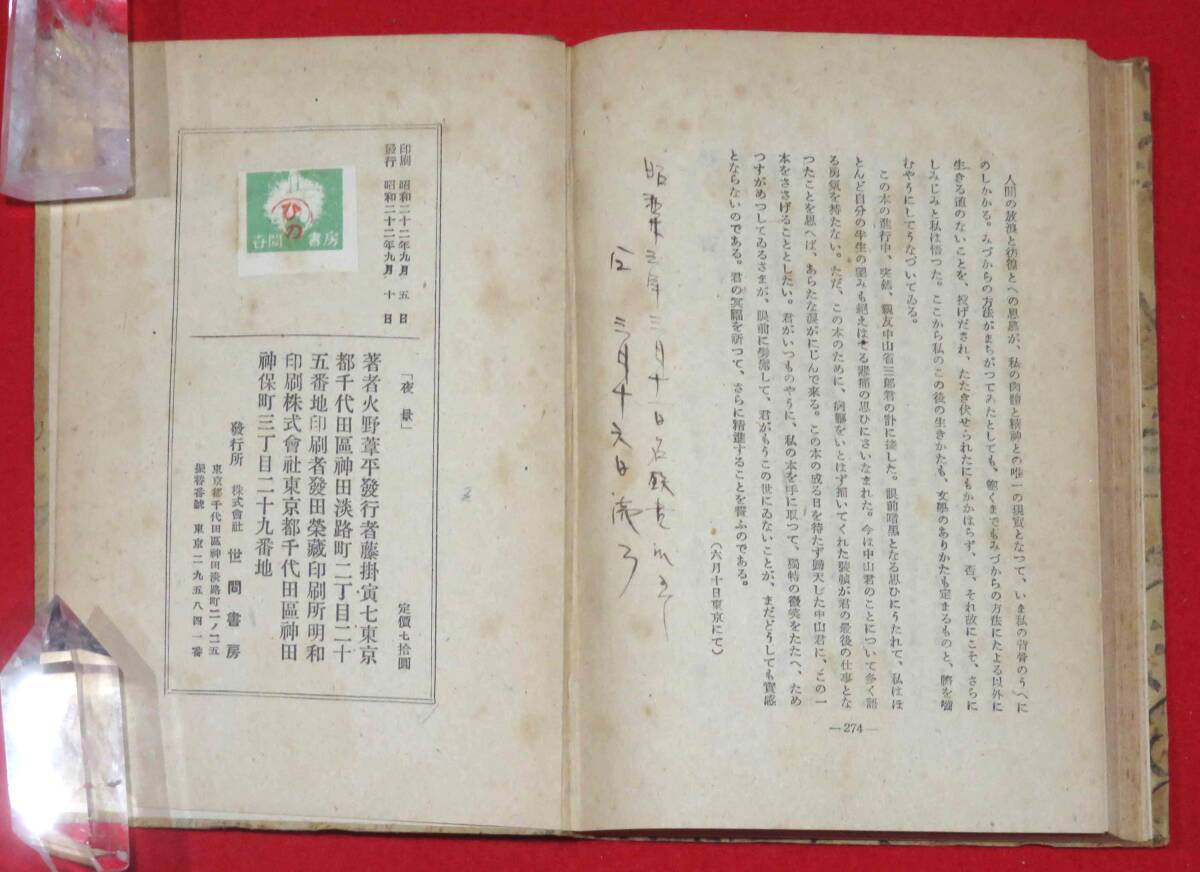 人間の放浪と彷徨とへの思慕が、私の肉體と精神との唯一の現實となつて、いま私の背骨のうへに
のしかかる。みづからの方法がまちがつてゐたとしても、飽くまでもみづからの方法にたよる以外に
生きる道のないことを、投げだされ、たたき伏せられたにもかかはらず、否、それ故にこそ、さらに
しみじみと私は悟つた。ここから私のこの後の生きかたも、文學のありかたも定まるものと、臍を嚙
むやうにしてうなづいてゐる。
この本の進行中、突然、親友中山省三郎君の訃に接した。眼前暗黑となる思ひにうたれて、私はほ
とんど自分の半生の望みも絕えはてる悲痛の思ひにさいなまれた。今は中山君のことについて多く語
る勇氣を持たない。ただ、この本のために、病軀をいとはず描いてくれた裝幀が君の最後の仕事とな
つたことを思へば、あらたな淚がにじんで來る。この本の成る日を待たず歸天した中山君に、この一
本をささげることとしたい。君がいつものやうに、私の本を手に取つて、獨特の微笑をたたへ、ため
つすがめつしてゐるさまが、眼前に髣髴して、君がもうこの世にゐないことが、まだどうしても實感
とならないのである。君の冥福を祈つて、さらに精進することを誓ふのである。
(六月十日東京にて)
三月十一日名
三月十六日
—274—
印刷 昭和二十二年九月 五 日
發行 昭和二十二年九月 十 日
ひの
書房
「夜景」
定價七拾圓
著者火野葦平發行者藤掛寅七東京
都千代田區神田淡路町二丁目二十
五番地印刷者發田榮藏印刷所明和
印刷株式會社東京都千代田區神田
神保町三丁目二十九番地
發行所 株式會社 世間書房
東京都千代田區神田淡路町二ノ二五
振替番號 東京二九五八四一番